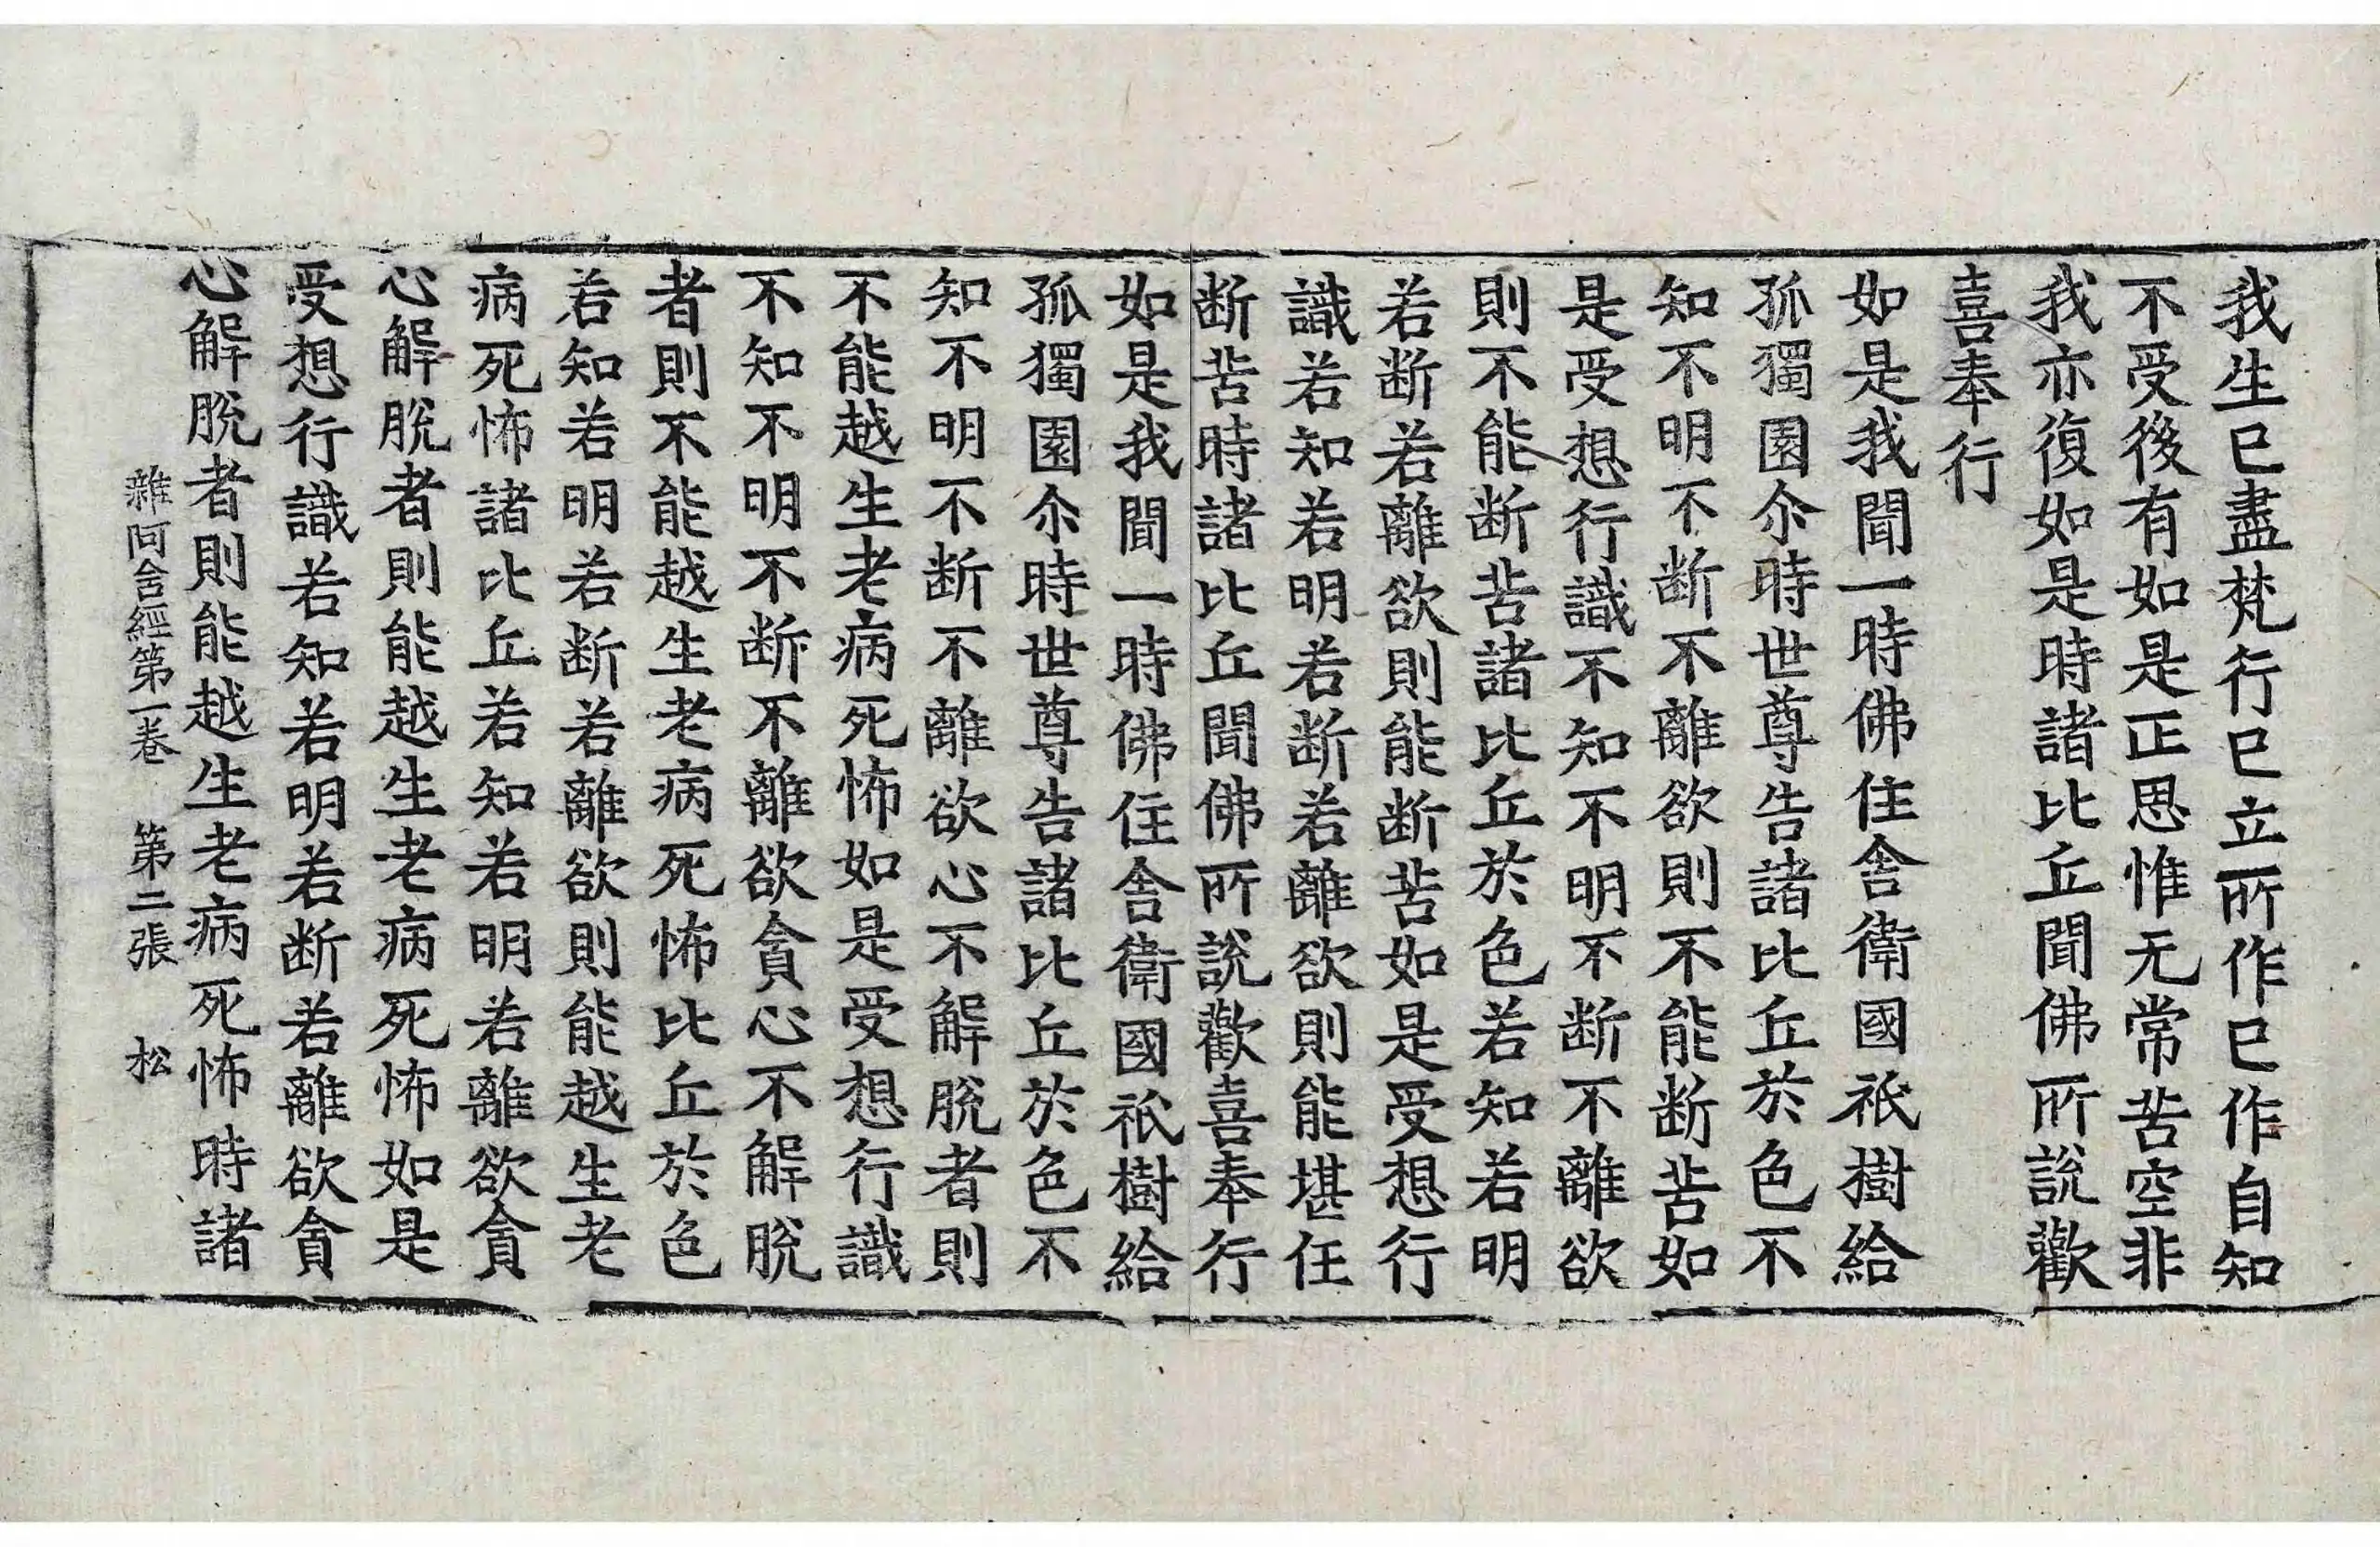 我生已盡梵行已立所作已作自知
不受後有如是正思惟无常苦空非
我亦復如是時諸比丘聞佛所說歡
喜奉行
如是我聞一時佛住舍衛國祇樹給
孤獨園尒時世尊告諸比丘於色不
知不明不断不離欲則不能断苦如
是受想行識不知不明不断不離欲
則不能断苦諸比丘於色若知若明
若断若離欲則能断苦如是受想行
識若知若明若断若離欲則能堪任
断苦時諸比丘聞佛所說歡喜奉行
如是我聞一時佛住舍衛國祇樹給
孤獨園尒時世尊告諸比丘於色不
知不明不断不離欲心不解脫者則
不能越生老病死怖如是受想行識
不知不明不断不離欲貪心不解脫
者則不能越生老病死怖比丘於色
若知若明若断若離欲則能越生老
病死怖諸比丘若知若明若離欲貪
心解脫者則能越生老病死怖如是
受想行識若知若明若断若離欲貪
心解脫者則能越生老病死怖時諸
雜阿含經第一卷 第二張 松